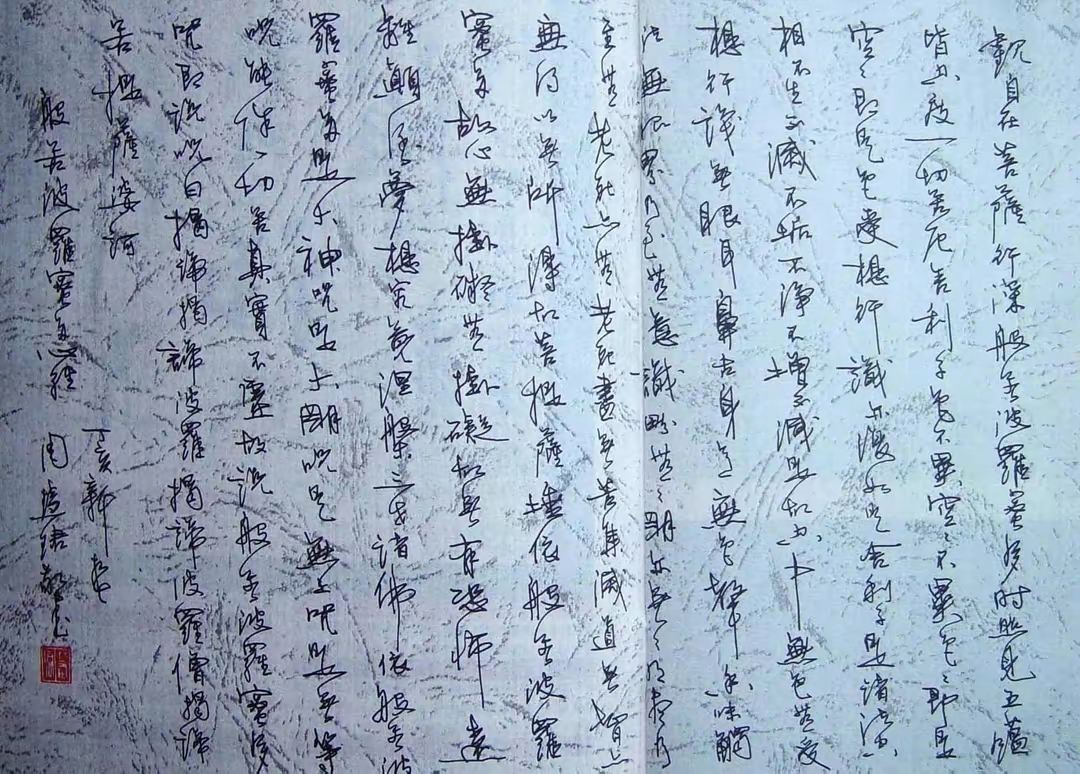 觀自在菩薩行深般若波羅蜜多時照見五蘊
皆空度一切苦厄舍利子色不異空空不異色色即是
空空即是色受想行識亦復如是舍利子是諸法空
相不生不滅不垢不淨不增不減是故空中無色無受
想行識無眼耳鼻舌身意無色聲香味觸
法無眼界乃至無意識界無無明亦無無明盡乃
至無老死亦無老死盡無苦集滅道無智亦
無得以無所得故菩提薩埵依般若波羅
蜜多故心無掛礙無掛礙故無有恐怖遠
離顛倒夢想究竟涅槃三世諸佛依般若波
羅蜜多是大神咒是大明咒是無上咒是無等
咒能除一切苦真實不虛故說般若波羅蜜多
咒即說咒曰揭諦揭諦波羅揭諦波羅僧揭諦
菩提薩婆訶
般若波羅蜜多心經
周